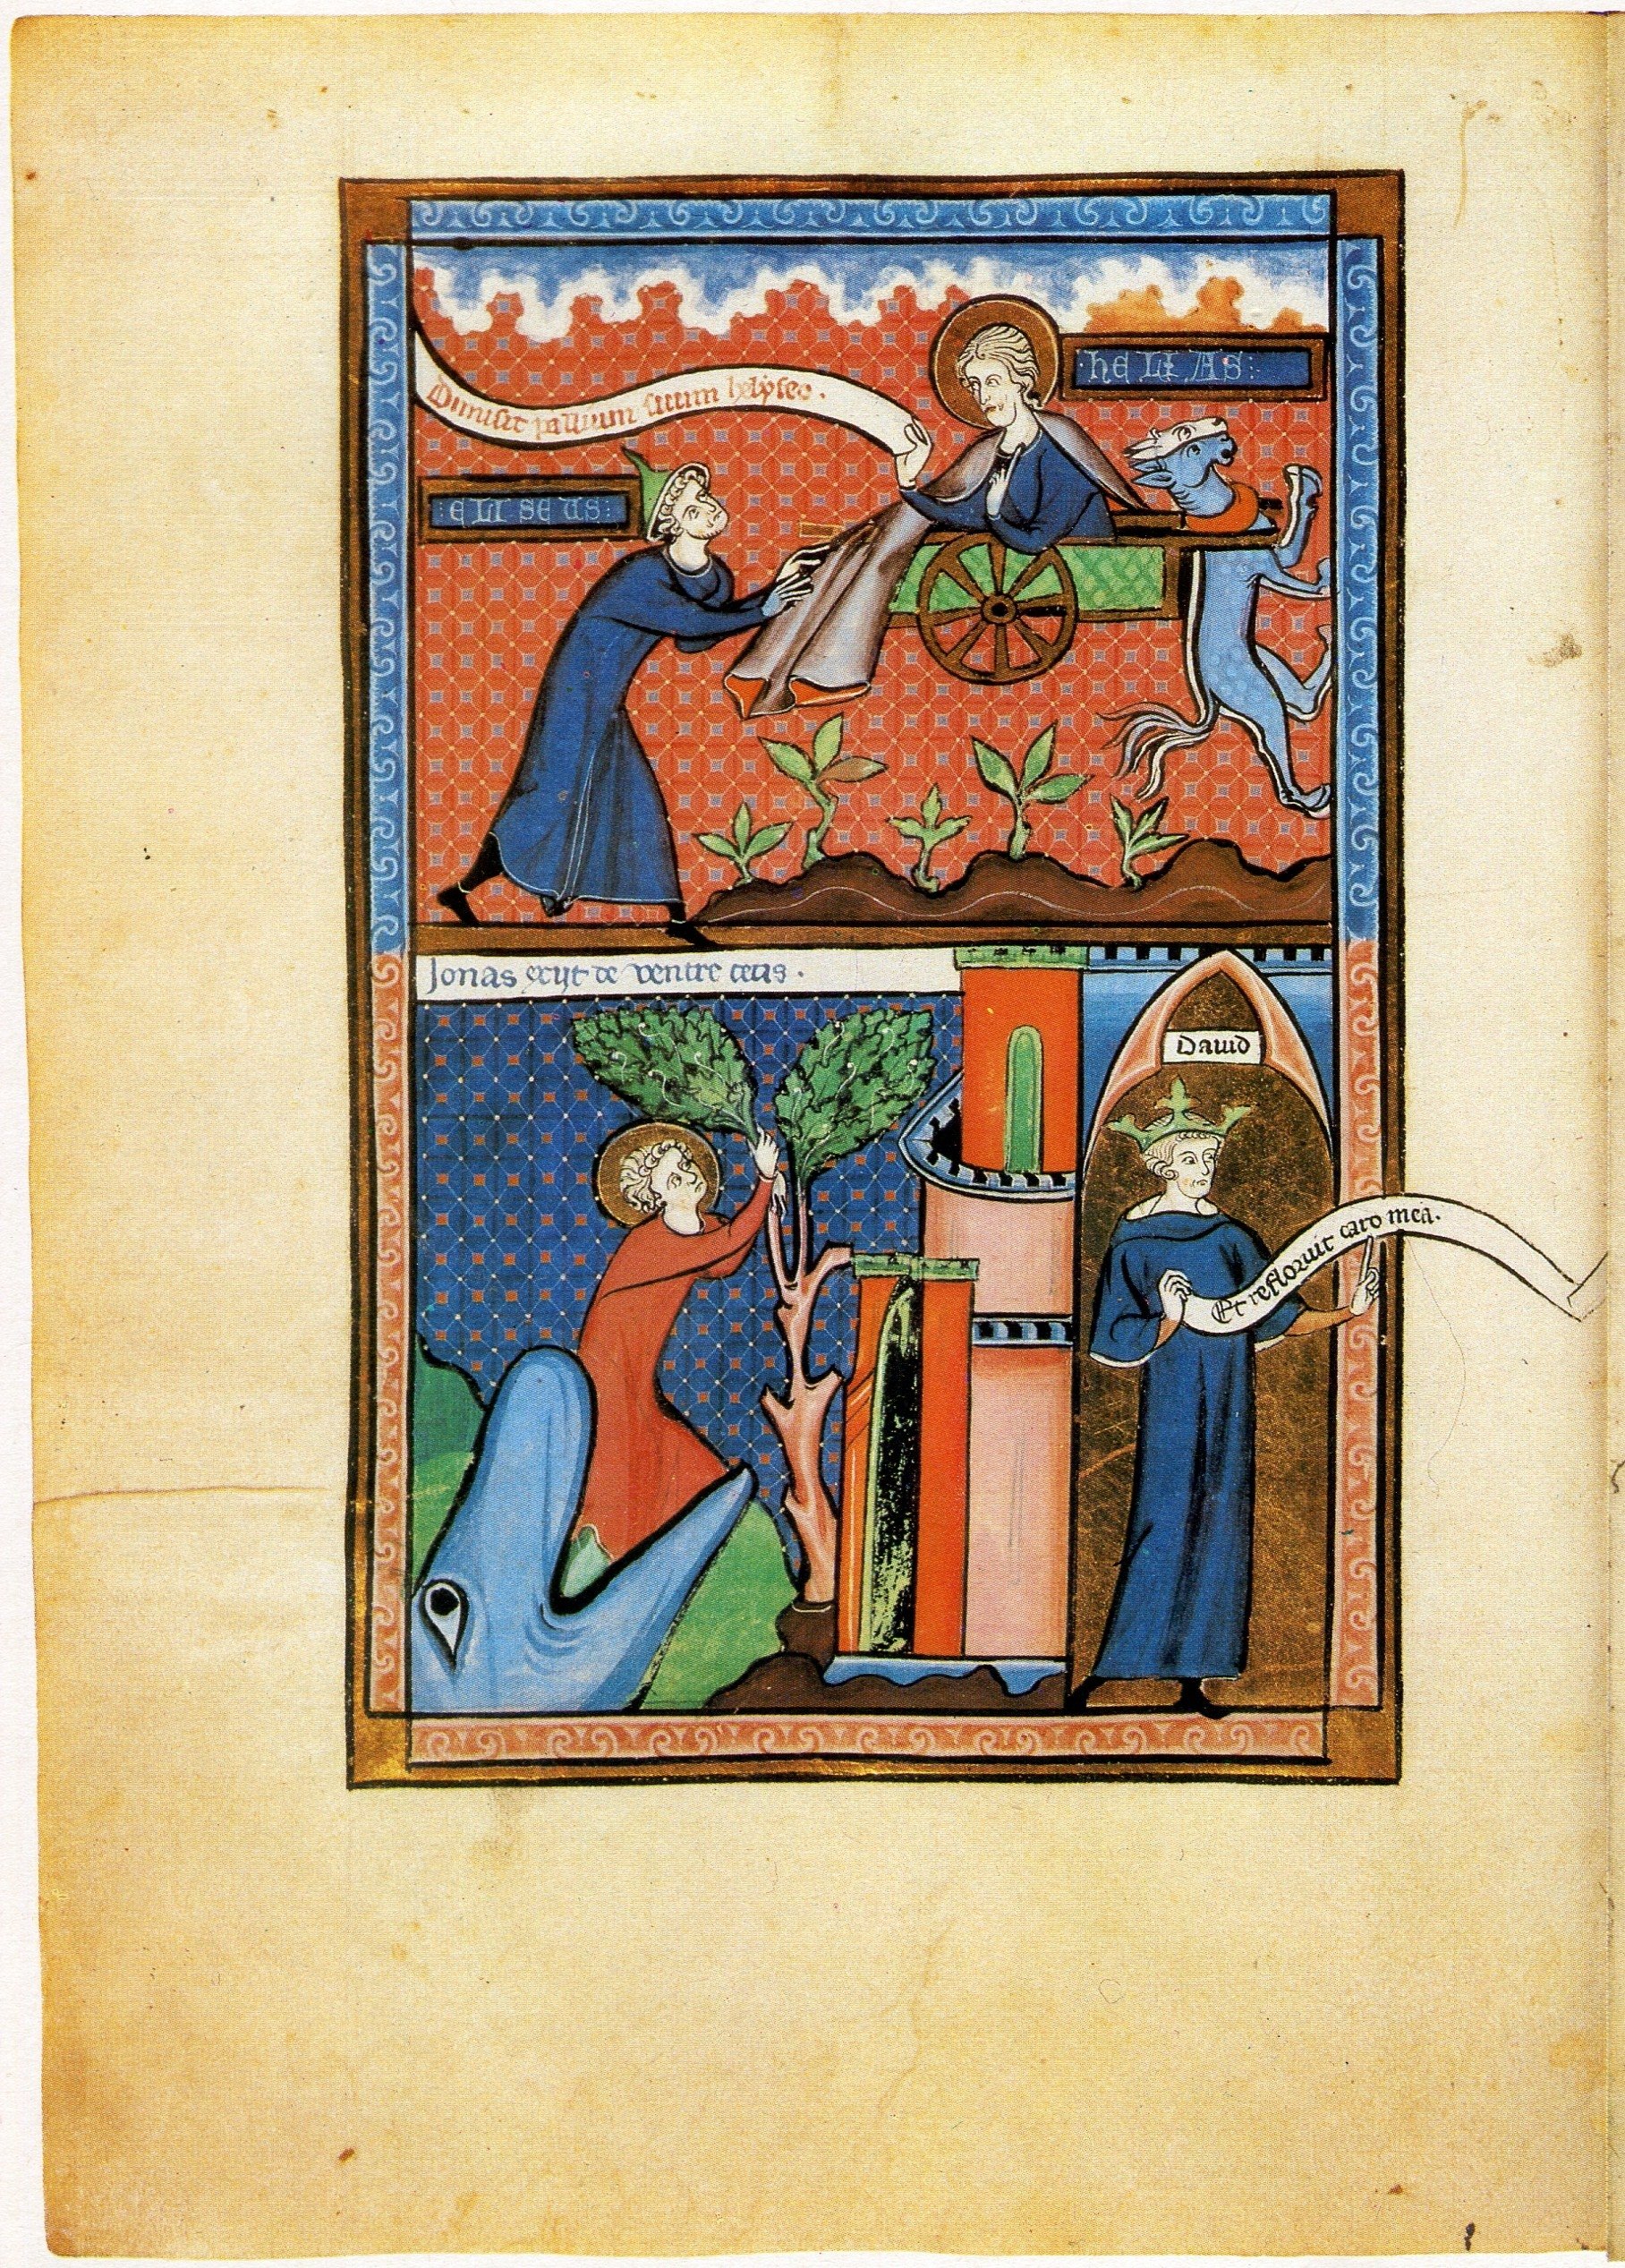 Dimisit pallium suum helyseo.
·heLIAS:
:eLISeUS:
Jonas exijt de ventre cetis.
David
Et refloruit caro mea.